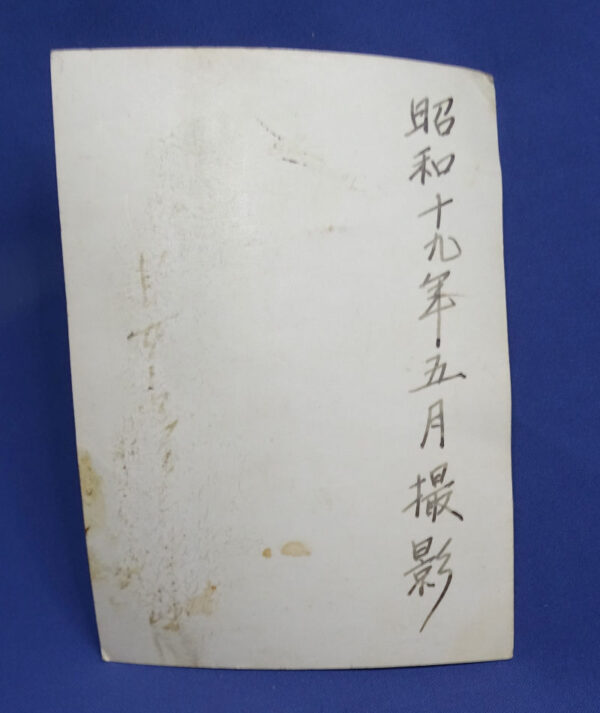 昭和十九年五月撮影